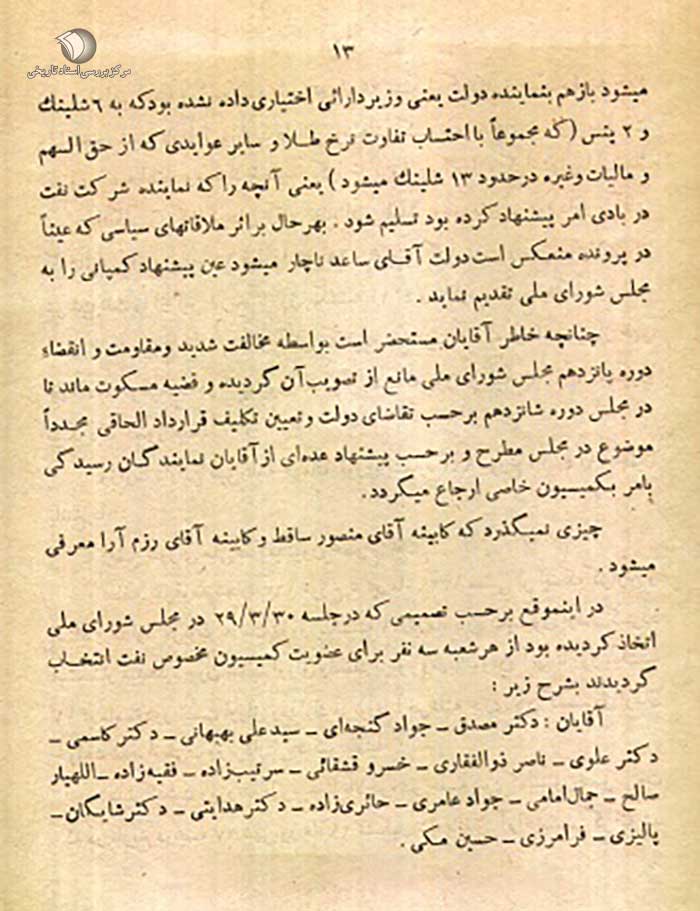 ۱۳
مرکز بررسی اسناد تاریخی
میشود بازهم بنماینده دولت یعنی وزیر دارائی اختیاری داده نشده بود که به ۶ شلینك
و ۲ پنس (که مجموعاً با احتساب تفاوت نرخ طلا و سایر عوایدی که از حق السهم
و مالیات وغیره درحدود ۱۳ شلینك میشود) یعنی آنچه را که نماینده شرکت نفت
در بادی امر پیشنهاد کرده بود تسلیم شود . بهرحال براثر ملاقاتهای سیاسی که عیناً
در پرونده منعکس است دولت آقای ساعد ناچار میشود عین پیشنهاد کمپانی را به
مجلس شورای ملی تقدیم نماید .
چنانچه خاطر آقایان مستحضر است بواسطه مخالفت شدید ومقاومت و انقضاء
دوره پانزدهم مجلس شورای ملی مانع از تصویب آن گردیده و قضیه مسکوت ماند تا
در مجلس دوره شانزدهم برحسب تقاضای دولت وتعیین تکلیف قرارداد الحاقی مجدداً
موضوع در مجلس مطرح و برحسب پیشنهاد عده‌ای ازآقایان نمایندگان رسیدگی
بامر بکمیسیون خاصی ارجاع میگردد.
چیزی نمیگذرد که کابینه آقای منصور ساقط وکابینه آقای رزم آرا معرفی
میشود .
در اینموقع برحسب تصمیمی که درجلسه ۲۹/۳/۳۰ در مجلس شورای ملی
اتخاذ کردیده بود از هرشعبه سه نفر برای عضویت کمیسیون مخصوص نفت انتخاب
گردیدند بشرح زیر :
آقایان : دکتر مصدق ـ جواد گنجه‌ای ـ سیدعلی بهبهانی ـ دکتر کاسمی ـ
دکتر علوی ـ ناصر ذوالفقاری ـ خسرو قشقائی ـ سرتیپ‌زاده ـ فقیه‌زاده ـ اللهیار
صالح ـ جمال‌امامی ـ جواد عامری ـ حائری‌زاده ـ دکترهدایتی ـ دکترشایگان ـ
پالیزی ـ فرامرزی ـ حسین مکی .